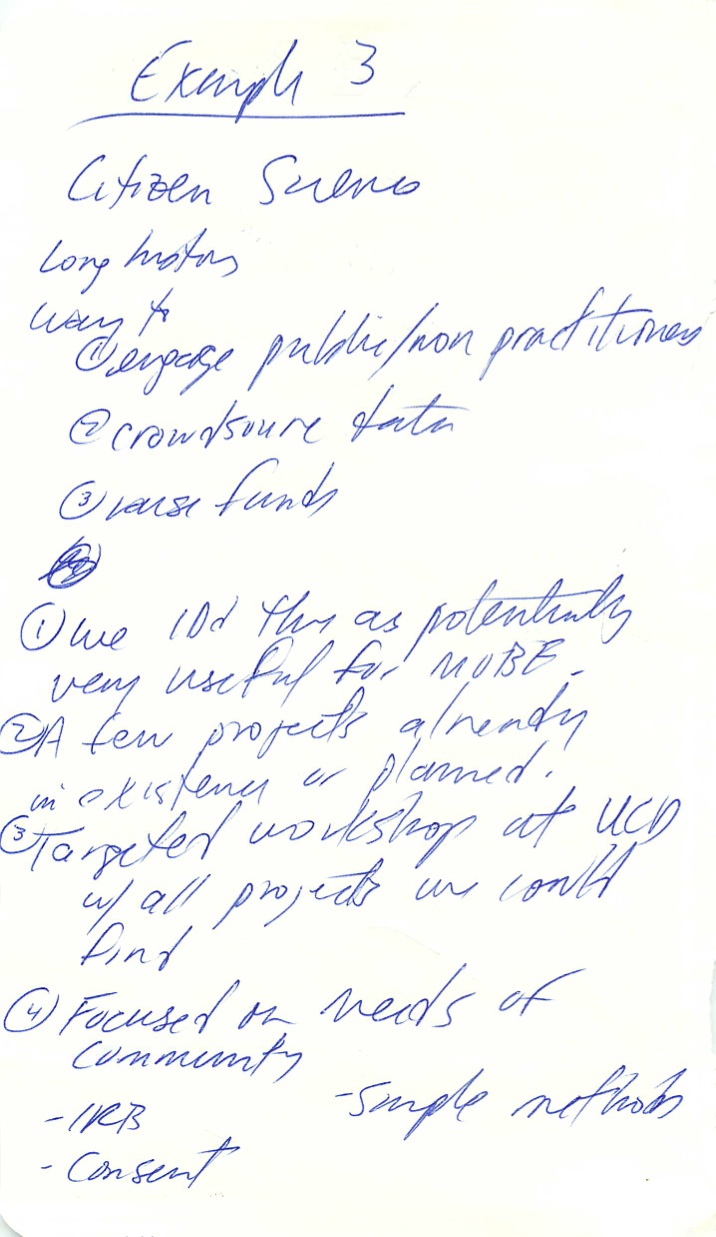 Example 3
Citizen Science
Long history
way to
① engage public/non practitioners
② crowdsource data
③ raise funds
① we IDd this as potentially
very useful for MOBE.
② A few projects already
in existence or planned.
③ Targeted workshop at UCD
w/ all projects we could
find
④ Focused on needs of
community
- IRB
- Simple methods
- Consent